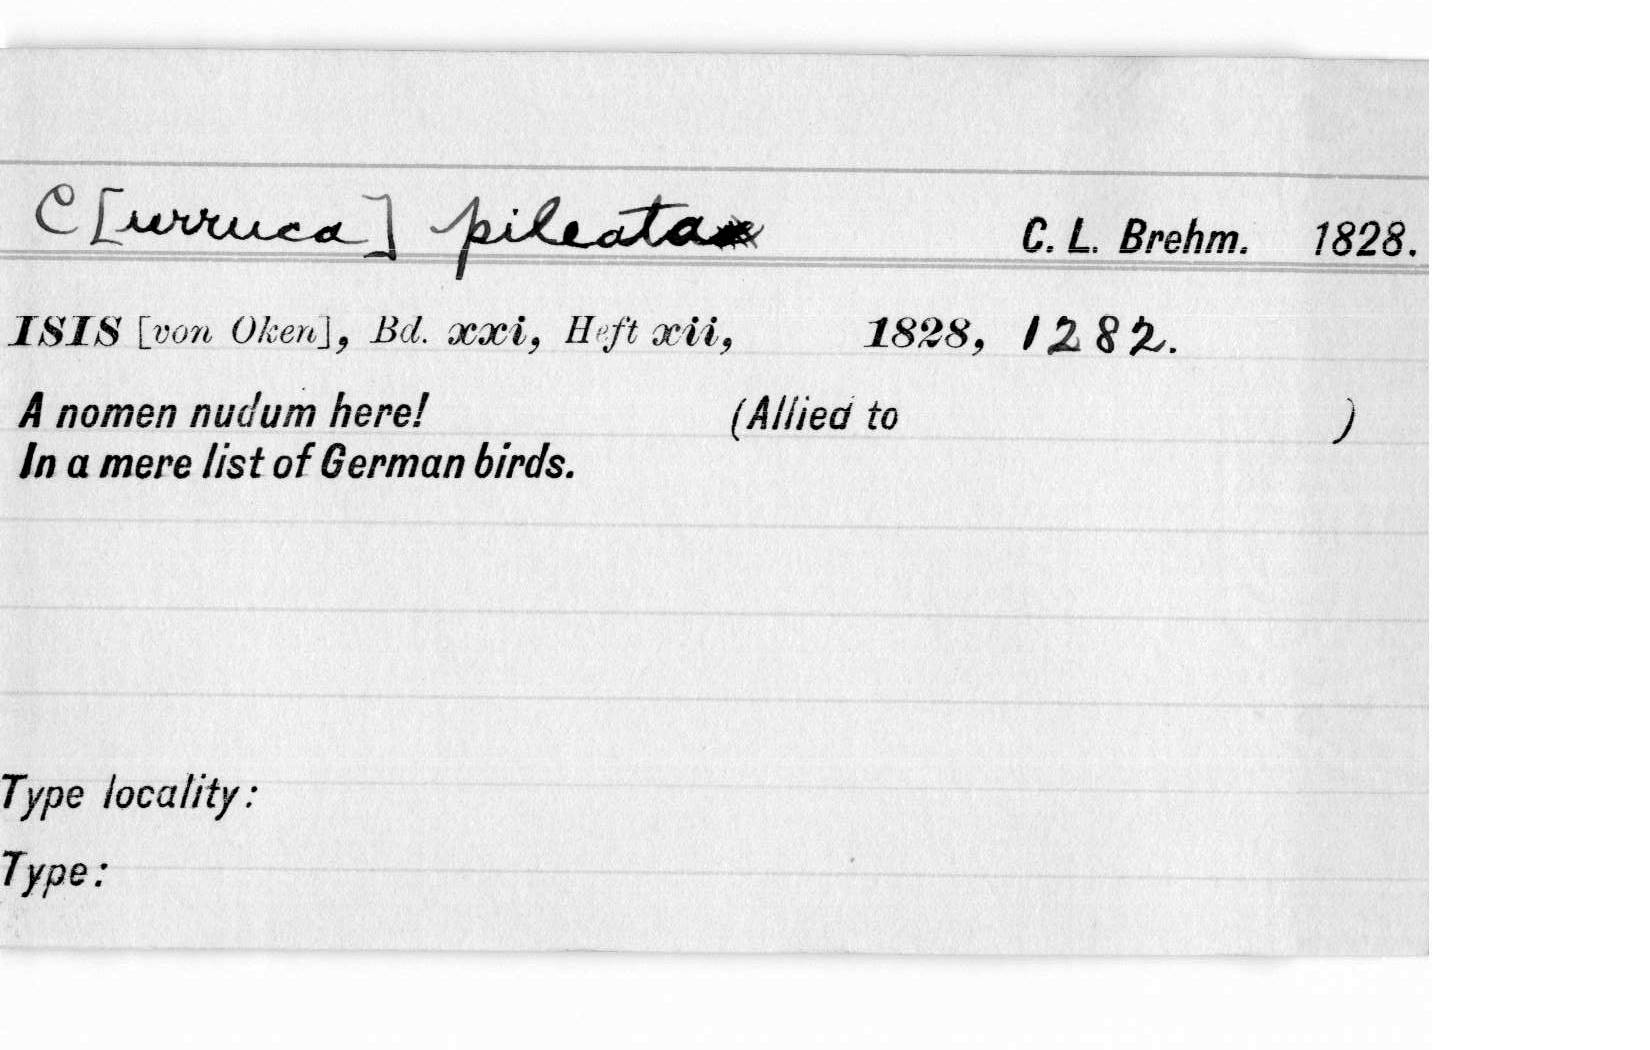 C[urruca] pileata C. L. Brehm. 1828.
ISIS [von Oken], Bd. xxi, Heft xii, 1828, 1282.
A nomen nudum here! (Allied to )
In a mere list of German birds.
Type locality:
Type: